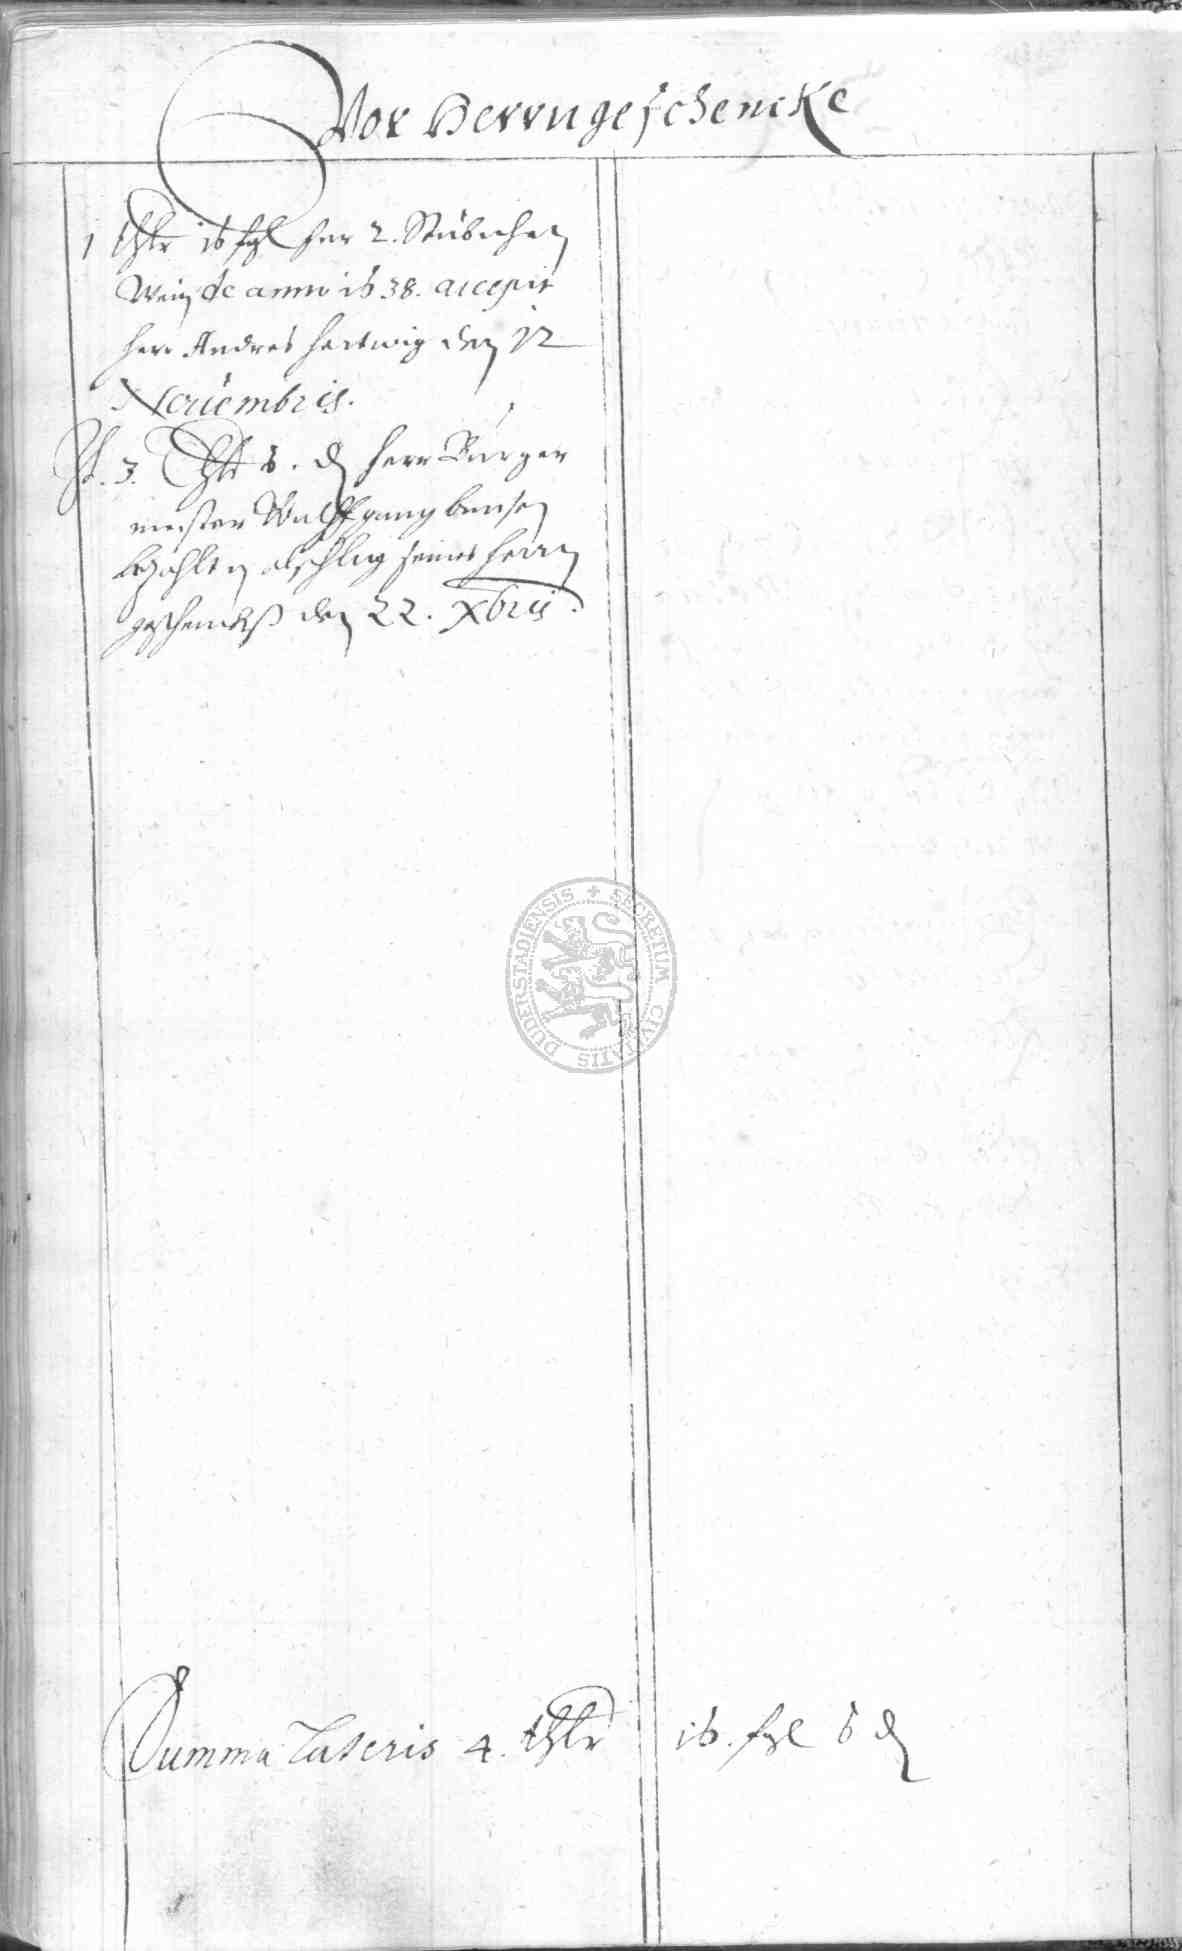 Vor Herrngeschencke
1 thlr 16 sgl fur 2. Stübichen
Wein de anno 1638. accepit
herr Andres Hartwig den 12
Nouembris.
It. 3. thlr 6. d herr Burger
meister Wulffgang
bezahlt seines herrn
geschencks den 22. Xbris.
Summa Lateris 4. thlr 16. sgl 6 d
SECRETUM CIVITATIS DUDERSTADIENSIS